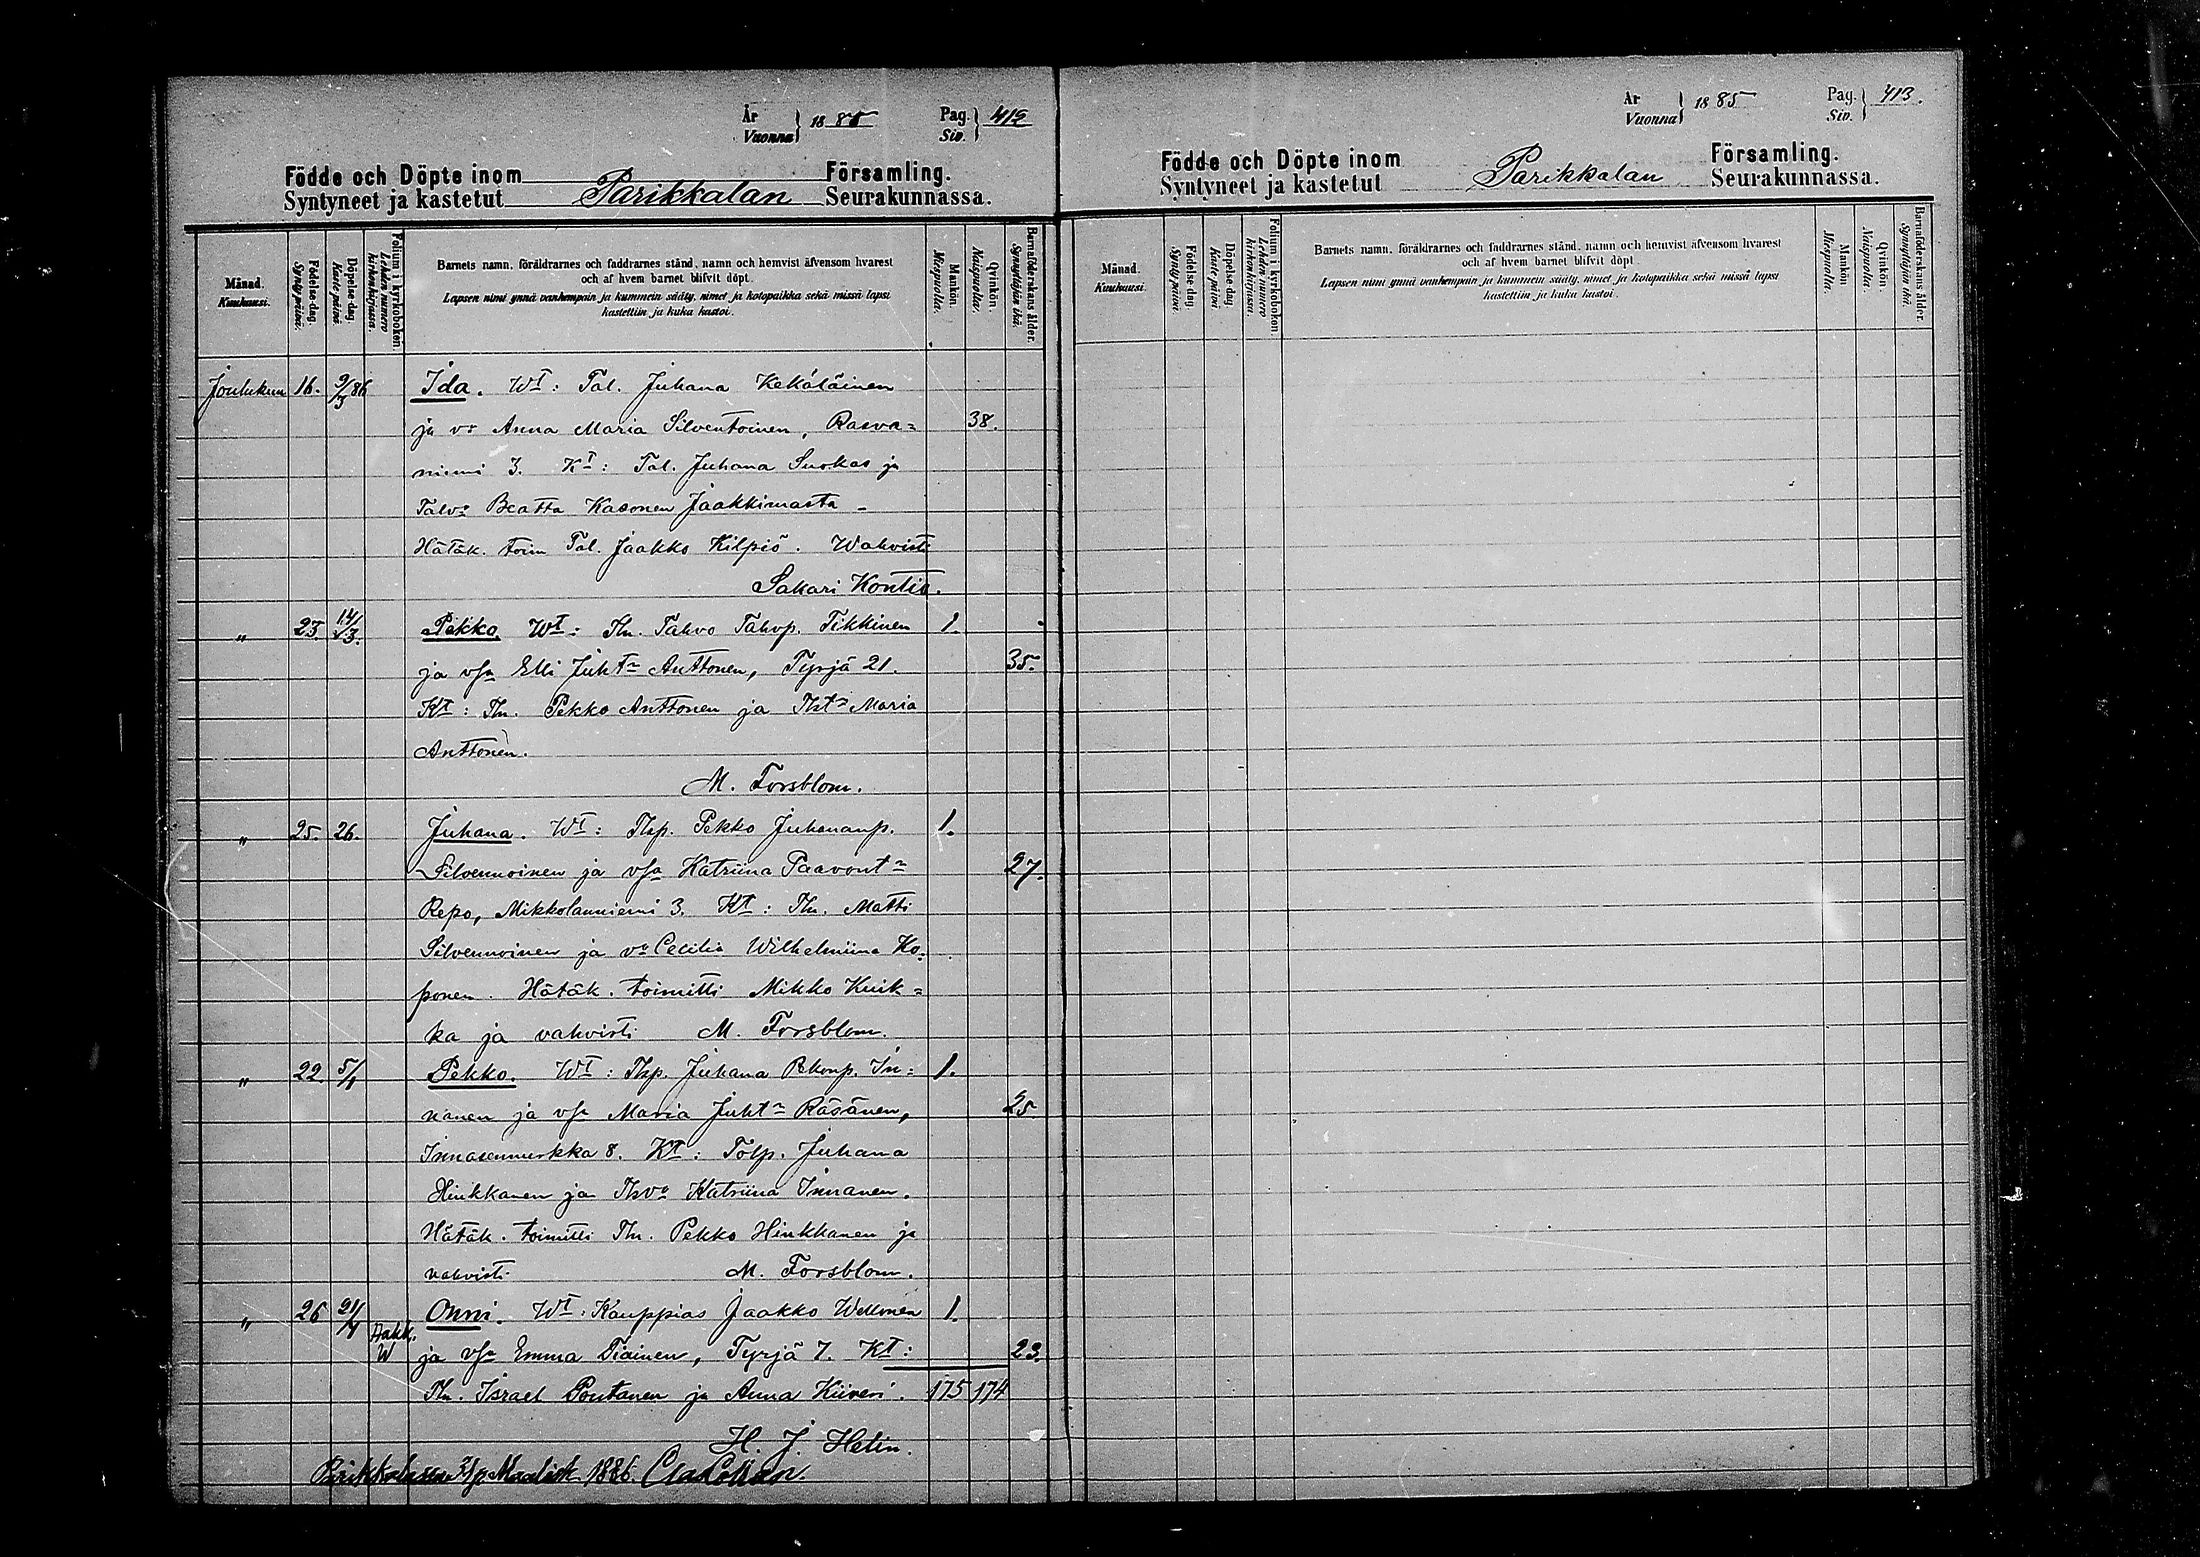 År
Vuonna } 1885
Pag.
Siv. } 412
Födde och Döpte inom Församling.
Syntyneet ja kastetut Parikkalan Seurakunnassa.
Månad.
Kuukausi.
Födelse-dag.
Syntypäivä.
Döpelse-dag.
Kaste päivä.
Folium i kyrkoboken.
Lehden numero kirkonkirjassa.
Barnets namn, föräldrarnes och faddrarnes stånd, namn och hemvist äfvensom hvarest
och af hvem barnet blifvit döpt.
Lapsen nimi ynnä vanhempain ja kummein sääty, nimet ja kotopaikka sekä missä lapsi
kastettiin ja kuka kastoi.
Mankön.
Miespuolia.
Qvinkön.
Naispuolia.
Barnaföderskans ålder.
Synnyttäjän ikä.
Joulukuu 16. 9/3 86 Ida. Wt: Tal. Juhana Kekäläinen
ja v: Anna Maria Silventoinen, Rasva= 38.
niemi 3. Kt: Tal. Juhana Suokas ja
Talv: Beatta Kasonen Jaakkimasta
Hätäk. toim Tal. Jaakko Kilpiö. Wahvisti
Sakari Kontio.
" 23 14/3. Pekko. Wt: Thn. Tahvo Tahvp. Tikkinen 1.
ja vsa Elli Juhtr Anttonen, Tyrjä 21. 35.
Kt: Thn. Pekko Anttonen ja Thtr Maria
Anttonen.
M. Forsblom.
" 25. 26. Juhana. Wt: Tlsp. Pekko Juhananp. 1.
Silvennoinen ja vsa Katriina Paavontr 27.
Repo, Mikkolanniemi 3. Kt: Thn. Matti
Silvennoinen ja vo Cecilia Wilhelmiina Ko=
ponen. Hätäk. toimitti Mikko Kuik=
ka ja vahvisti M. Forsblom.
" 22. 5/1 Pekko. Wt: Tlsp. Juhana Pekonp. In= 1.
nanen ja vsa Maria Juhtr Räsänen, 25
Innasennurkka 8. Kt: Tolp. Juhana
Hinkkanen ja Thvo Katriina Innanen.
Hätäk. toimitti Thn. Pekko Hinkkanen ja
vahvisti M. Forsblom.
" 26 21/4 Onni. Wt: Kauppias Jaakko Wellonen 1.
W ja vsa Emma Tiainen, Tyrjä 7. Kt: 23.
Thn. Israel Pontanen ja Anna Kiiveri. 175 174
H. J. Helin.
Parikkalassa Maalisk. 1886.
År
Vuonna } 1885
Pag.
Siv. } 413.
Födde och Döpte inom Församling.
Syntyneet ja kastetut Parikkalan Seurakunnassa.
Månad.
Kuukausi.
Födelse-dag.
Syntypäivä.
Döpelse-dag.
Kaste päivä.
Folium i kyrkoboken.
Lehden numero kirkonkirjassa.
Barnets namn, föräldrarnes och faddrarnes stånd, namn och hemvist äfvensom hvarest
och af hvem barnet blifvit döpt.
Lapsen nimi ynnä vanhempain ja kummein sääty, nimet ja kotopaikka sekä missä lapsi
kastettiin ja kuka kastoi.
Mankön
Miespuolia.
Qvinkön
Naispuolia.
Barnaföderskans ålder.
Synnyttäjän ikä.